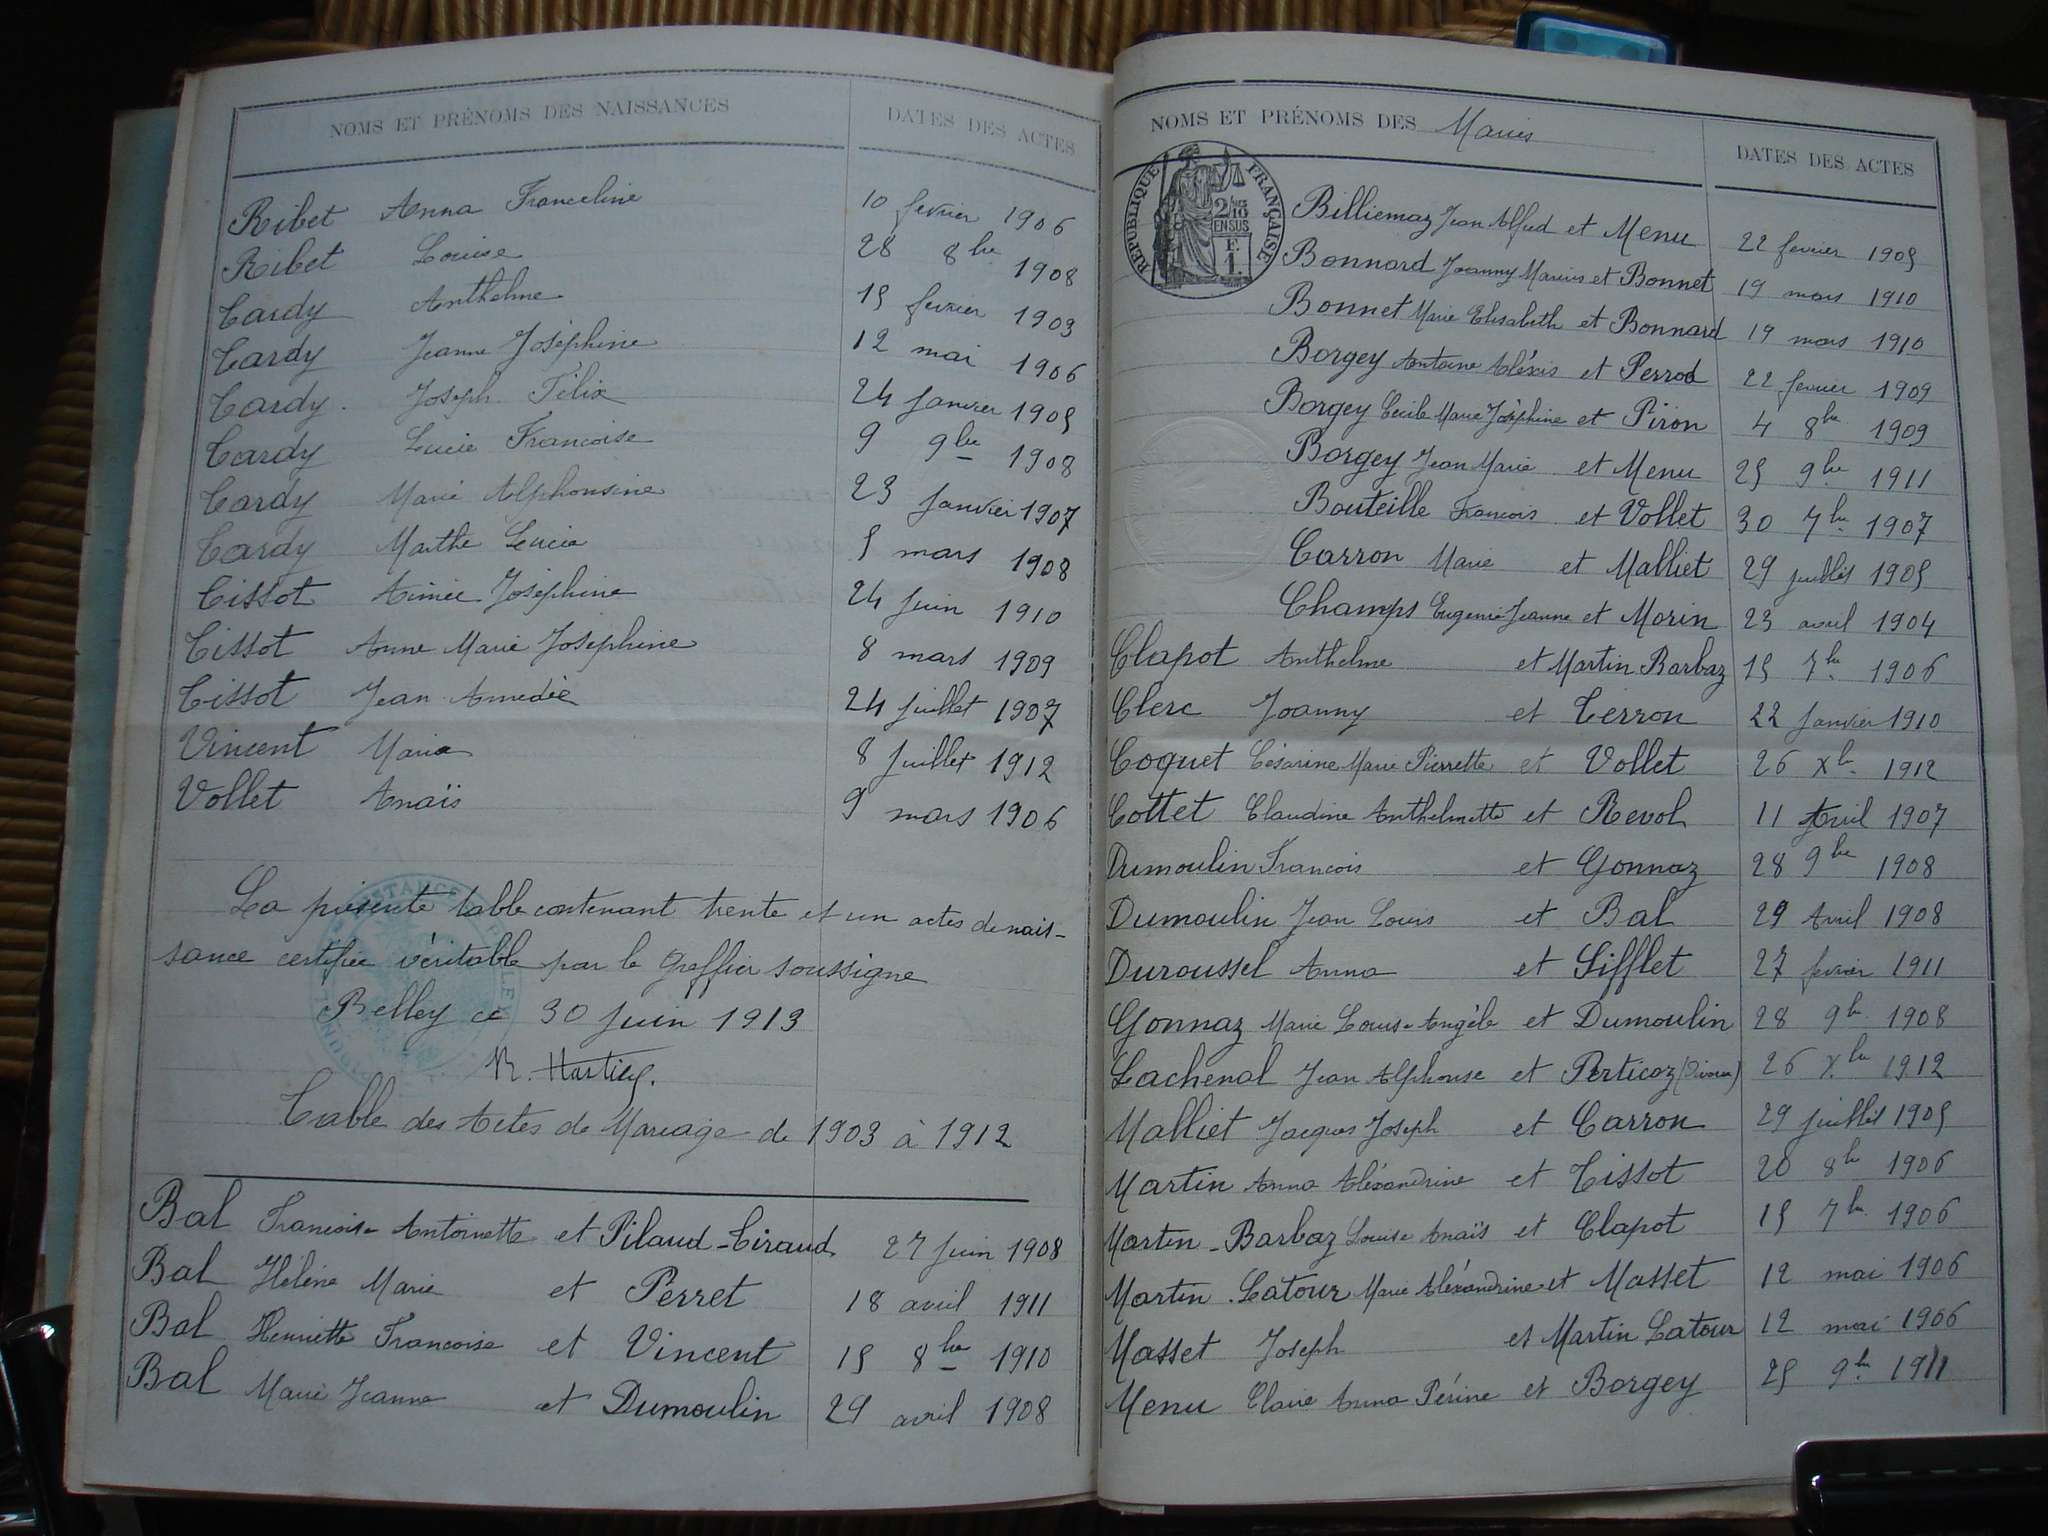 NOMS ET PRÉNOMS DES NAISSANCES DATES DES ACTES
Ribet Anna Franceline 10 fevrier 1906
Ribet Louise 28 8bre 1908
Tardy Anthelme 15 fevrier 1903
Tardy Jeanne Joséphine 12 mai 1906
Tardy Joseph Félix 24 Janvier 1905
Tardy Lucie Francoise 9 9bre 1908
Tardy Marie Alphonsine 23 Janvier 1907
Tardy Marthe Lucia 5 mars 1908
Tissot Aimée Joséphine 24 Juin 1910
Tissot Anne Marie Joséphine 8 mars 1909
Tissot Jean Amedée 24 Juillet 1907
Vincent Maria 8 Juillet 1912
Vollet Anaïs 9 mars 1906
La présente table contenant trente et un actes de nais-
sance certifiée véritable par le Greffier soussigne
Belley ce 30 Juin 1913
Table des Actes de Mariage de 1903 à 1912
Bal Francoise Antoinette et Pilaud-Tiraud 27 Juin 1908
Bal Hélène Marie et Perret 18 avril 1911
Bal Henriette Francoise et Vincent 15 8bre 1910
Bal Marie Jeanne et Dumoulin 29 avril 1908
NOMS ET PRÉNOMS DES Mariés DATES DES ACTES
RÉPUBLIQUE FRANÇAISE
2/10 EN SUS
F. 1.
Billiemaz Jean Alfred et Menu 22 fevrier 1905
Bonnard Joanny Marius et Bonnet 19 mars 1910
Bonnet Marie Elisabeth et Bonnard 19 mars 1910
Borgey Antoine Aléxis et Perrod 22 fevrier 1909
Borgey Cécile Marie Joséphine et Piron 4 8bre 1909
Borgey Jean Marie et Menu 25 9bre 1911
Bouteille Francois et Vollet 30 7bre 1907
Carron Marie et Malliet 29 juillet 1905
Champs Eugenie Jeanne et Morin 23 avril 1904
Clapot Anthelme et Martin Barbaz 15 7bre 1906
Clerc Joanny et Terron 22 Janvier 1910
Coquet Césarine Marie Pierrette et Vollet 26 Xbre 1912
Cottet Claudine Anthelmette et Revol 11 Avril 1907
Dumoulin Francois et Gonnaz 28 9bre 1908
Dumoulin Jean Louis et Bal 29 Avril 1908
Duroussel Anna et Sifflet 27 fevrier 1911
Gonnaz Marie Louise Angèle et Dumoulin 28 9bre 1908
Lachenal Jean Alphonse et Perticoz (Divorce) 26 Xbre 1912
Malliet Jacques Joseph et Carron 29 juillet 1905
Martin Anna Aléxandrine et Tissot 20 8bre 1906
Martin-Barbaz Louise Anaïs et Clapot 15 7bre 1906
Martin-Latour Marie Aléxandrine et Masset 12 mai 1906
Masset Joseph et Martin Latour 12 mai 1906
Menu Claire Anna Périne et Borgey 25 9bre 1911